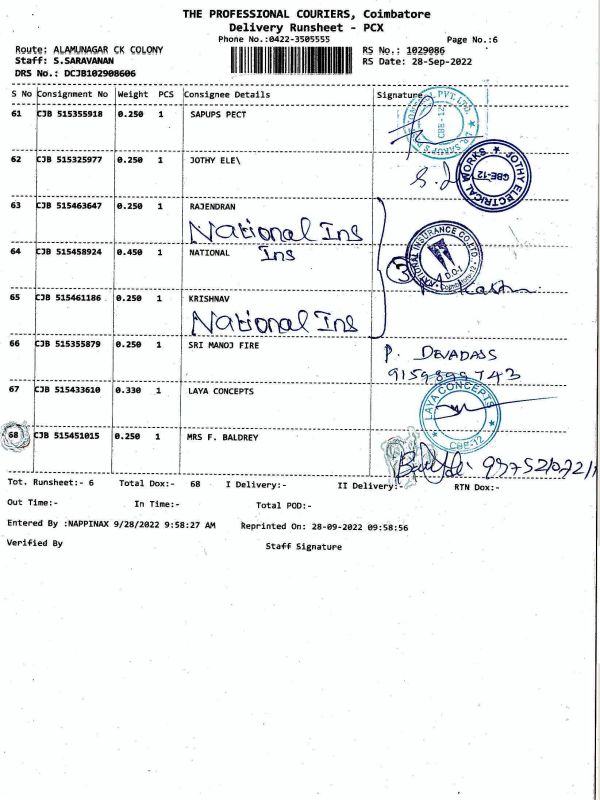 THE PROFESSIONAL COURIERS, Coimbatore
Delivery Runsheet - PCX
Phone No.:0422-3505555
Page No.:6
Route: ALAMUNAGAR CK COLONY
RS No.: 1029086
Staff: S.SARAVANAN
RS Date: 28-Sep-2022
DRS No.: DCJB102908606
S No Consignment No Weight PCS Consignee Details Signature
61 CJB 515355918 0.250 1 SAPUPS PECT
CBE-12
62 CJB 515325977 0.250 1 JOTHY ELE\
JOTHY ELECTRICAL WORKS ★ CBE-12
63 CJB 515463647 0.250 1 RAJENDRAN
National Ins
64 CJB 515458924 0.450 1 NATIONAL
Ins
3
NATIONAL INSURANCE CO.LTD.
65 CJB 515461186 0.250 1 KRISHNAV
National Ins
66 CJB 515355879 0.250 1 SRI MANOJ FIRE
P. DEVADASS
67 CJB 515433610 0.330 1 LAYA CONCEPTS
LAYA CONCEPTS CBE-12
68 CJB 515451015 0.250 1 MRS F. BALDREY
Tot. Runsheet:- 6 Total Dox:- 68 I Delivery:- II Delivery:- RTN Dox:-
Out Time:- In Time:- Total POD:-
Entered By :NAPPINAX 9/28/2022 9:58:27 AM Reprinted On: 28-09-2022 09:58:56
Verified By Staff Signature